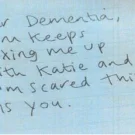 r Dementia,
m keeps
xing me up
ith Katie and
m scared this
is you.